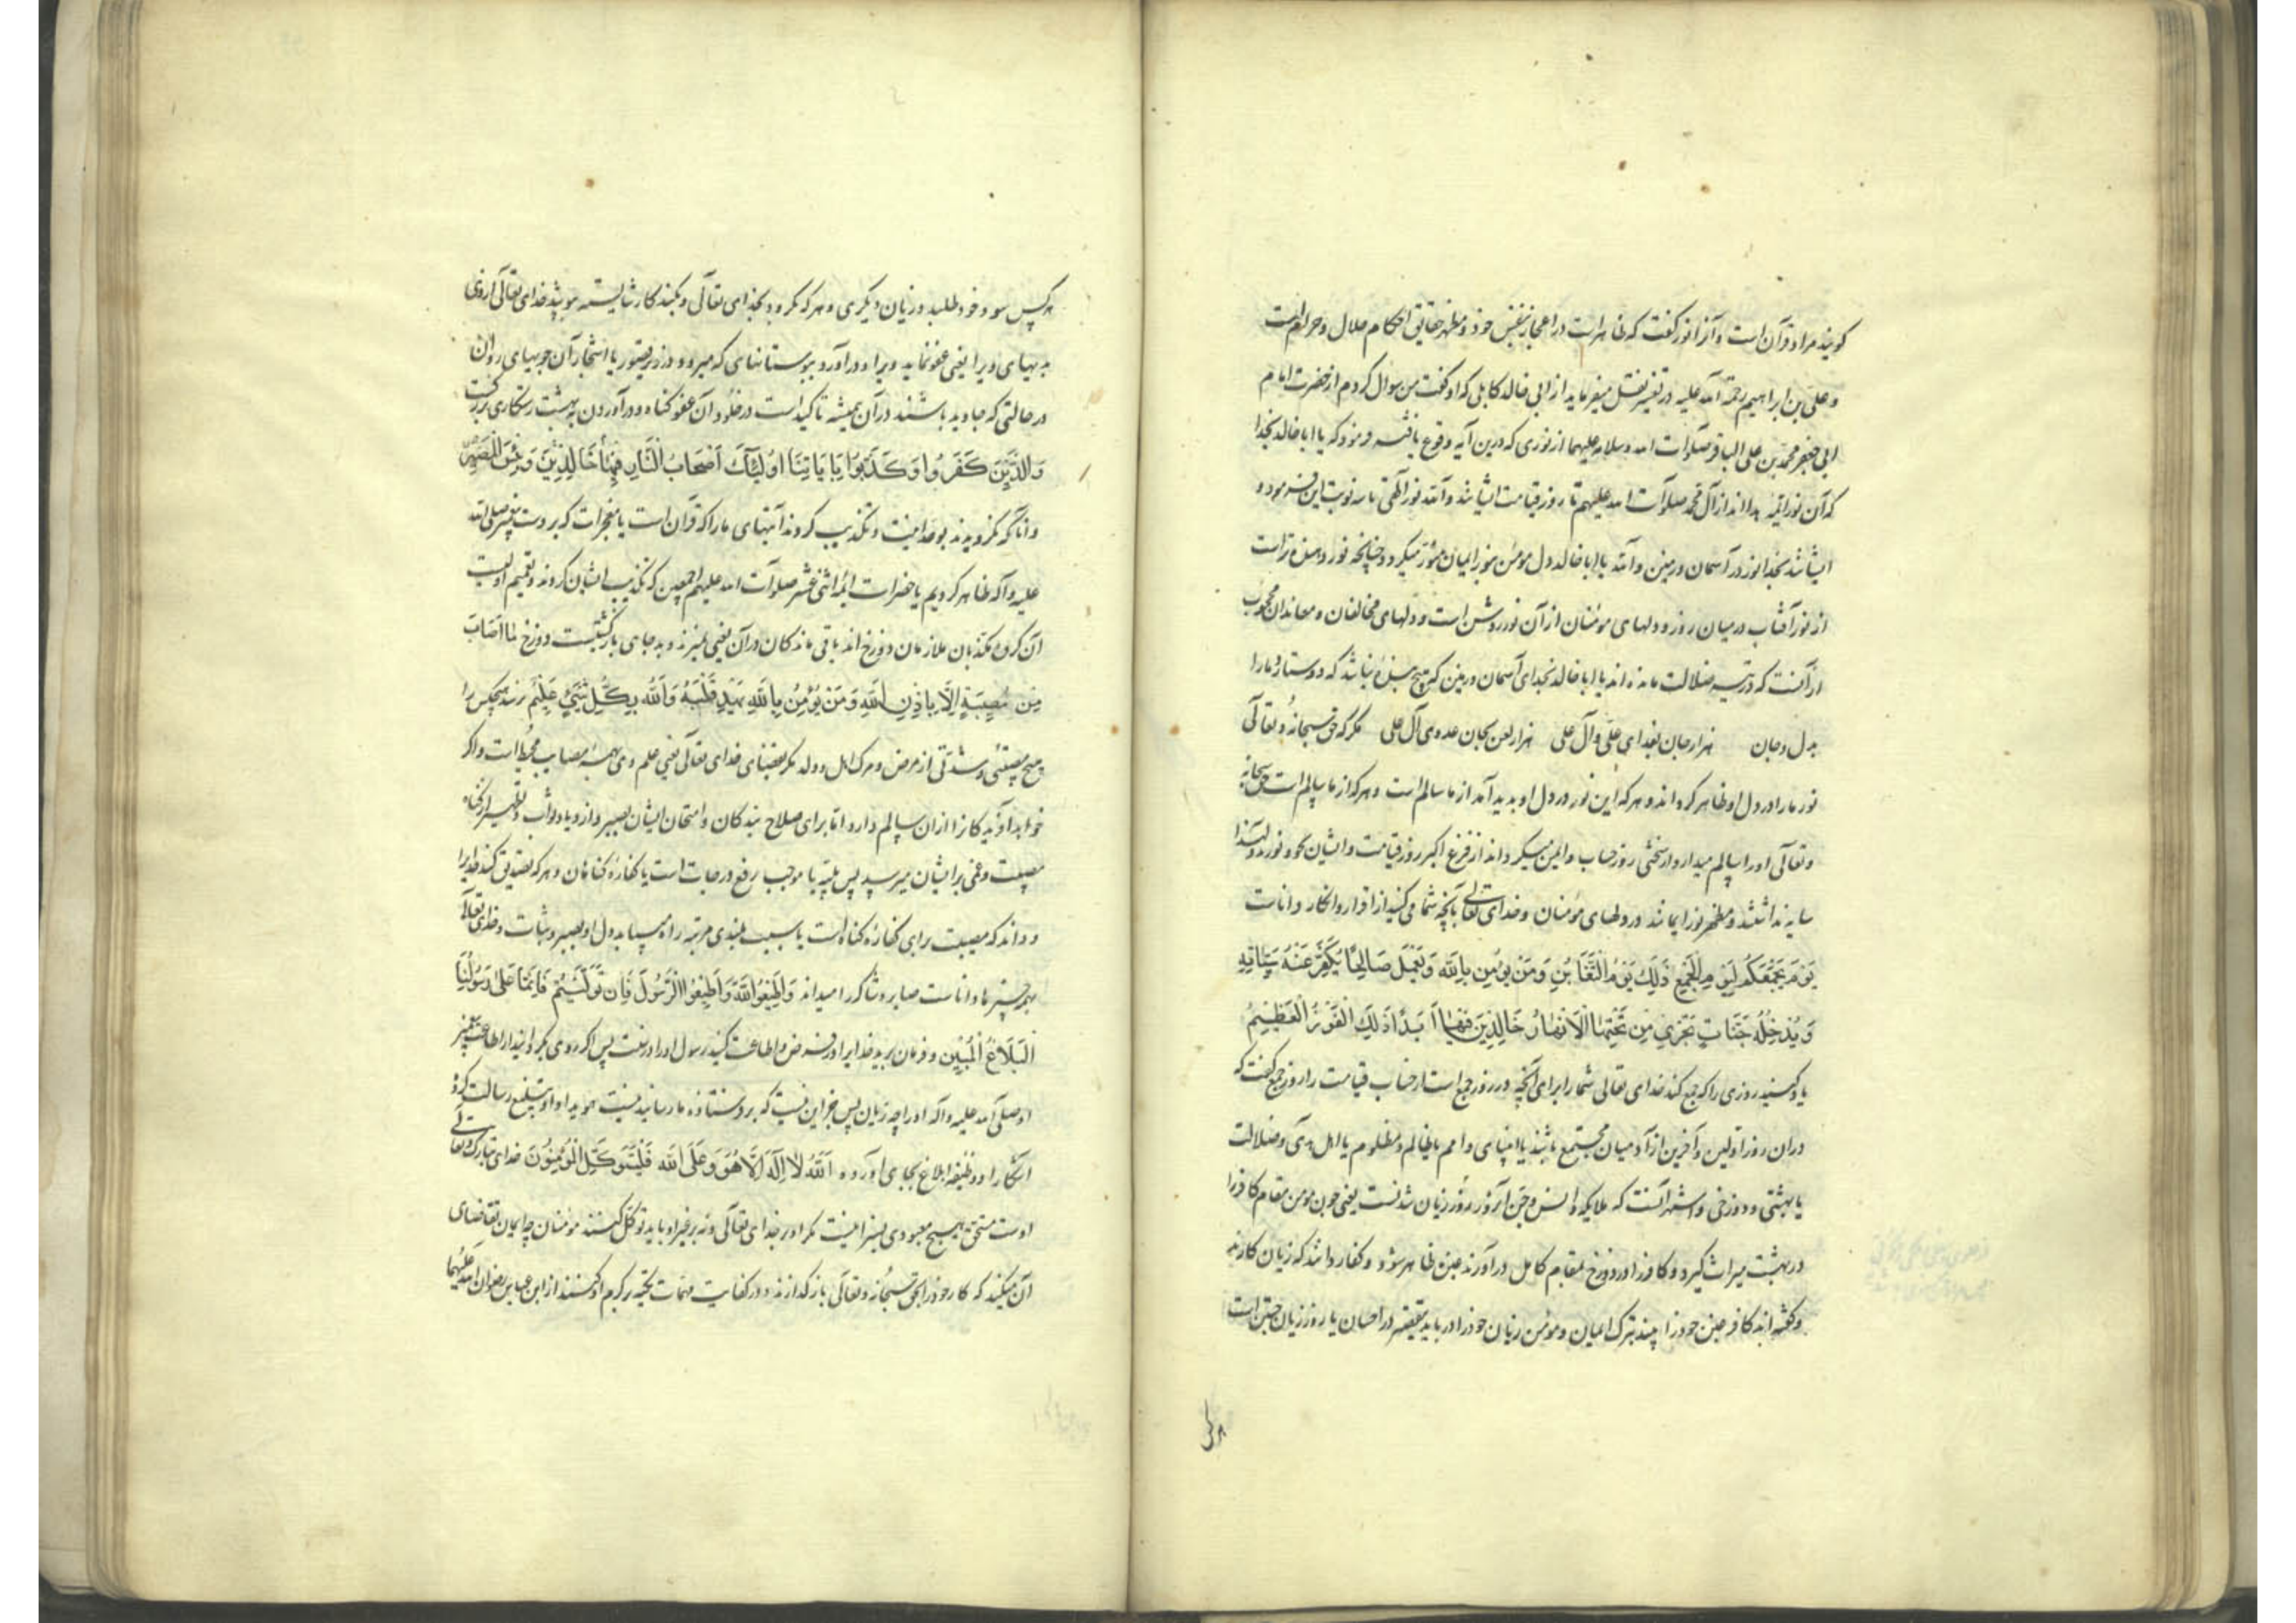 کویند مراد قرآن است و آنرا نور گفت که ظاهر است در اعجاز بنفس خود و مظهر حقایق احکام حلال و حرام است
و علی بن ابراهیم رحمة الله علیه در تفسیر نقل میفرماید از ابی خالد کابلی که او گفت من سوال کردم از حضرت امام
ابی جعفر محمد بن علی الباقر صلوات الله و سلامه علیهما از نوری که درین آیه وقوع یافته فرمود که یا ابا خالد بخدا
که آن نور ائمه هدا اند از آل محمد صلوات الله علیهم تا روز قیامت ایشانند والله نور الهی تا سه نوبت این فرمود و
ایشانند بخدا نور در آسمان و زمین والله یا ابا خالد دل مومن بنور ایمان منور میگردد چنانچه نور دهنده تر است
از نور آفتاب در میان روز و دلهای مومنان از آن نور روشن است و دلهای مخالفان و معاندان محجوب
از آنست که در تیه ضلالت مانده اند یا ابا خالد بخدای آسمان و زمین که هیچ بنده نباشد که دوستدار ما را
بدل و جان هزار جان بفدای علی و آل علی هزار لعن بجان عدوی آل علی مکر که حق سبحانه و تعالی
نور ما را در دل او ظاهر کرداند و هر که این نور در دل او پدید آمد از ما سالم است و هر که از ما سالم است حق سبحانه
و تعالی او را سالم میدارد از سختی روز حساب و ایمن میگرداند از فزع اکبر روز قیامت و ایشان محو نورند
سایه نداشتند و مظهر نور ایمانند در دلهای مومنان و خدای تعالی بآنچه شما می کنید از اقرار و انکار داناست
یَوْمَ یَجْمَعُکُمْ لِیَوْمِ الْجَمْعِ ذٰلِكَ یَوْمُ التَّغَابُنِ وَمَنْ یُؤْمِنْ بِاللّٰهِ وَیَعْمَلْ صَالِحًا یُکَفِّرْ عَنْهُ سَیِّئَاتِهِ
وَیُدْخِلْهُ جَنَّاتٍ تَجْرِي مِنْ تَحْتِهَا الْاَنْهَارُ خَالِدِینَ فِیهَا اَبَدًا ذٰلِكَ الْفَوْزُ الْعَظِیمُ
یاد کنید روزی را که جمع کند خدای تعالی شما را برای آنچه در روز جمع است از حساب قیامت را روز جمع گفت که
در آن روز اولین و آخرین از آدمیان مجتمع باشند یا انبیای و امم یا ظالم و مظلوم یا اهل هدی و ضلالت
یا بهشتی و دوزخی و اشهر آنست که ملایکه و انس و جن آنروز روز زیان شدنست یعنی چون مومن مقام کافر را
در بهشت میراث گیرد و کافر را در دوزخ بمقام کامل درآورند غبن ظاهر شود و کفار دانند که زیان کارند
و گفته اند کافر غبن خود را بیند بترک ایمان و مومن زیان خود را دریابد بتقصیر در احسان یا روز زیان جستن است
هر کس
هر کس سود خود طلبد و زیان دیگری و هر که بگرود بخدای تعالی و بکند کار شایسته بپوشد خدای تعالی از وی
بدیهای ویرا یعنی عفو نماید ویرا و درآورد ببوستانهای که میرود در زیر قصور یا اشجار آن جویهای روان
در حالتی که جاوید باشند در آن همیشه تاکید است در خلود آن عفو گناه و درآوردن بهشت رستگاری بزرگست
وَالَّذِینَ کَفَرُوا وَکَذَّبُوا بِاٰیَاتِنَا اُولٰئِكَ اَصْحَابُ النَّارِ خَالِدِینَ فِیهَا وَبِئْسَ الْمَصِیرُ
و آنانکه نگرویدند بوحدانیت و تکذیب کردند آیتهای ما را که قرآن است یا معجزات که بر دست پیغمبر صلی الله
علیه و آله ظاهر کردیم یا حضرات ائمه اثنی عشر صلوات الله علیهم اجمعین که تکذیب ایشان کردند و تعمیم اولیست
آن گروه مکذبان ملازمان دوزخ اند باقی ماندگان در آن یعنی نمیرند و بد جای بازگشتیست دوزخ مَا اَصَابَ
مِنْ مُصِیبَةٍ اِلَّا بِاِذْنِ اللّٰهِ وَمَنْ یُؤْمِنْ بِاللّٰهِ یَهْدِ قَلْبَهُ وَاللّٰهُ بِکُلِّ شَيْءٍ عَلِیمٌ نرسد هیچکس را
هیچ مصیبتی و شدتی از مرض و مرک اهل و ولد مکر بقضای خدای تعالی یعنی علم وی بهمه مصایب محیط است و اگر
خواهد آفریدگان را از آن سالم دارد اما برای صلاح بندگان و امتحان ایشان بصبر و ازدیاد ثواب و تطهیر از گناه
مصیبت و غمی بر ایشان میرسد پس بلیه یا موجب رفع درجات است یا کفاره گناهان و هر که تصدیق کند خدایرا
و داند که مصیبت برای کفاره گناه است یا سبب بلندی مرتبه راه مییابد دل او بصبر و ثبات و خدای تعالی
بهمه چیزها داناست صابر و شاکر را میداند وَاَطِیعُوا اللّٰهَ وَاَطِیعُوا الرَّسُولَ فَاِنْ تَوَلَّیْتُمْ فَاِنَّمَا عَلٰی رَسُولِنَا
الْبَلَاغُ الْمُبِینُ و فرمان برید خدایرا در فرض و اطاعت کنید رسول او را در سنت پس اگر روی بگردانید از اطاعت پیغمبر
او صلی الله علیه و آله او را چه زیان پس جز این نیست که بر فرستاده ما رسانیدنیست هویدا و او تبلیغ رسالت کرده
آشکارا و وظیفه ابلاغ بجای آورده اَللّٰهُ لَا اِلٰهَ اِلَّا هُوَ وَعَلَی اللّٰهِ فَلْیَتَوَکَّلِ الْمُؤْمِنُونَ خدای تبارک و تعالی
اوست مستحق هیچ معبودی بسزا نیست مکر او بر خدای تعالی و نه بر غیر او باید توکل کنند مومنان چه ایمان تقاضای
آن میکند که کار خود را بحق سبحانه و تعالی باز گذارند و در کفایت مهمات تکیه بر کرم او کنند از ابن عباس رضوان الله علیهما